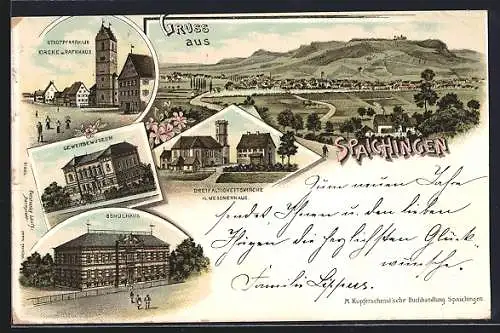 STADTPFARRHAUS
KIRCHE u. RATHAUS.
GRUSS
AUS
GEWERBEMUSEUM
SPAICHINGEN
DREIFALTIGKEITSKIRCHE
u. MESSNERHAUS.
SCHULHAUS
Zum neuen Jahre
sendet Ihnen u. den lieben
Ihrigen die herzlichsten Glück-
wünsche.
Familie
M. Kupferschmid'sche Buchhandlung Spaichingen.